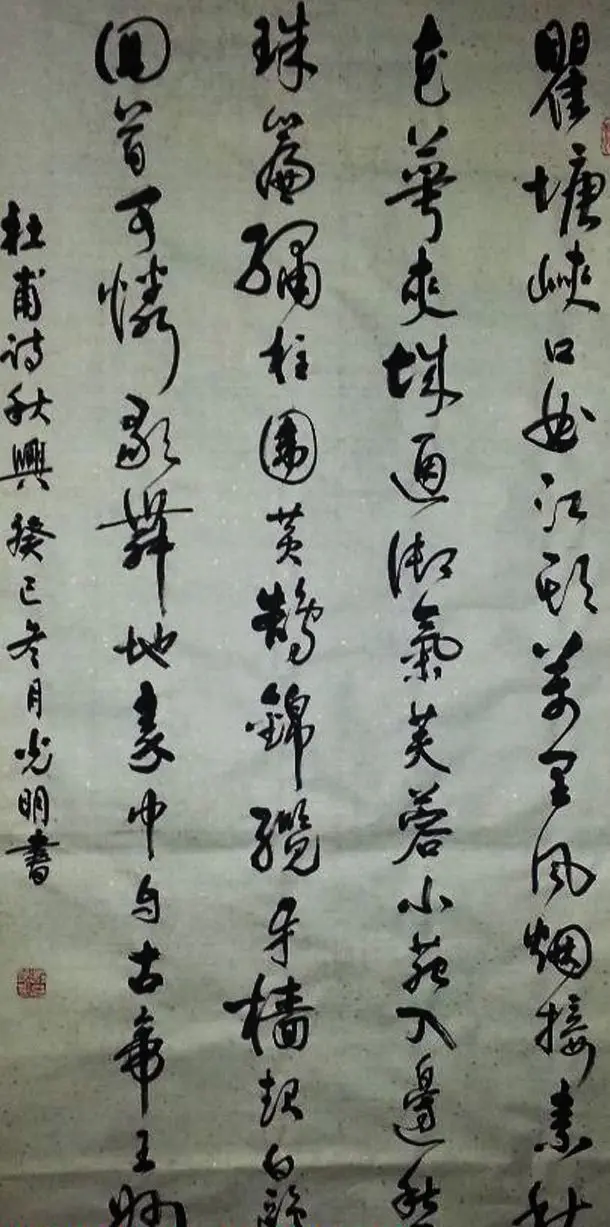 瞿塘峽口曲江頭萬里風烟接素秋
花萼夾城通御氣芙蓉小苑入邊愁
珠簾繡柱圍黃鵠錦纜牙檣起白鷗
回首可憐歌舞地秦中自古帝王州
杜甫詩秋興癸巳冬月光明書